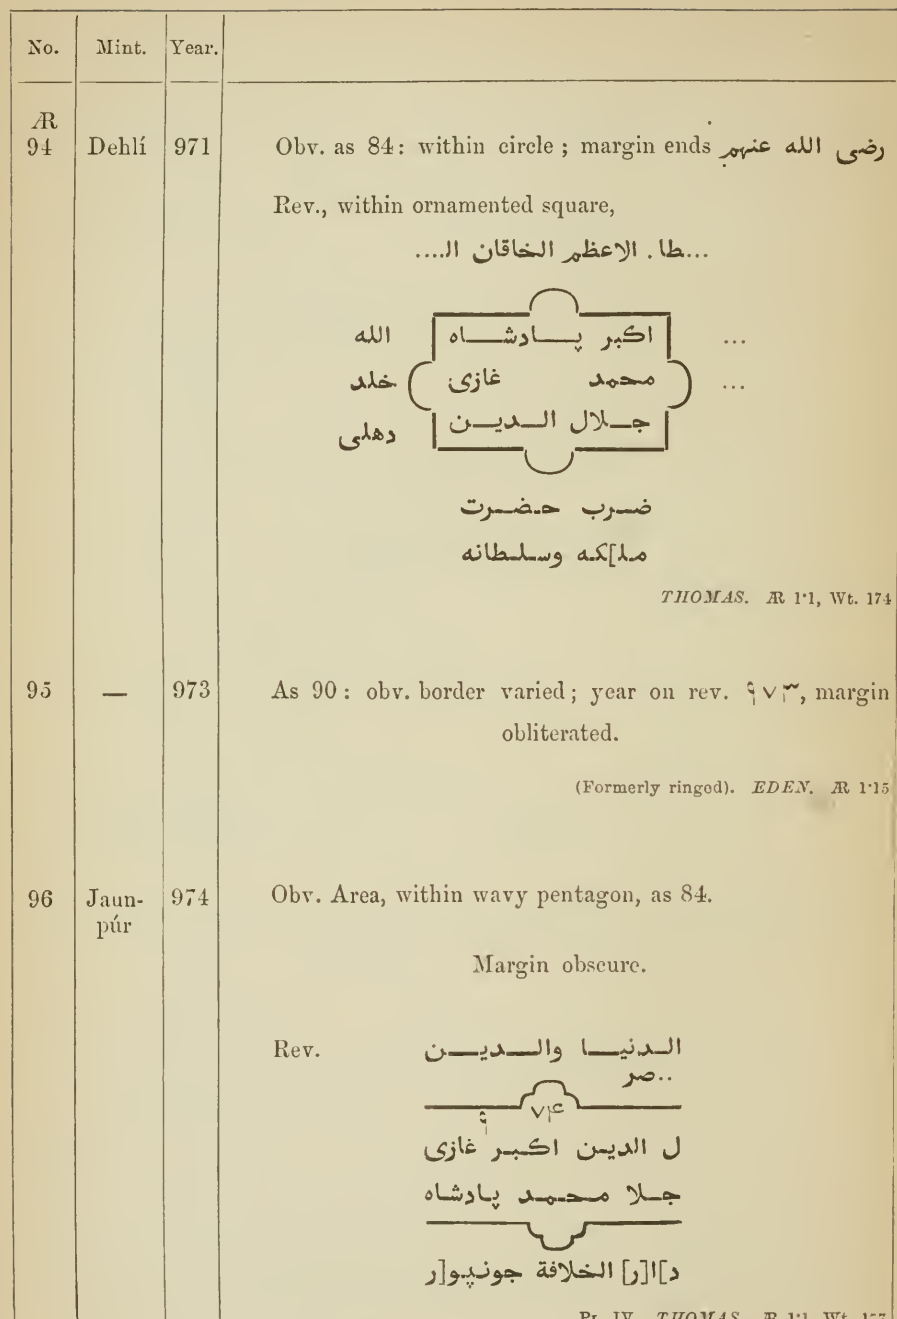 No. Mint. Year.
Æ
94 Dehlí 971 Obv. as 84: within circle; margin ends رضى الله عنهم
Rev., within ornamented square,
...طا. الاعظم الخاقان ال....
... اكبر پــادشــاه الله
... محمد غازى خلد
جــلال الــديــن دهلى
ضــرب حـضــرت
مـلـ]ـكـه وسـلـطانه
THOMAS. Æ 1·1, Wt. 174
95 — 973 As 90: obv. border varied; year on rev. ۹۷۳, margin
obliterated.
(Formerly ringed). EDEN. Æ 1·15
96 Jaun- 974 Obv. Area, within wavy pentagon, as 84.
púr
Margin obscure.
Rev. الــدنيــا والــديــن
..صر
۹۷۴
ل الديـن اكـبـر غازى
جـلا مـحـمـد پـادشاه
د]ا[ر] الخلافة جونـپـو[ر
Pl. IV. THOMAS. Æ 1·1, Wt.